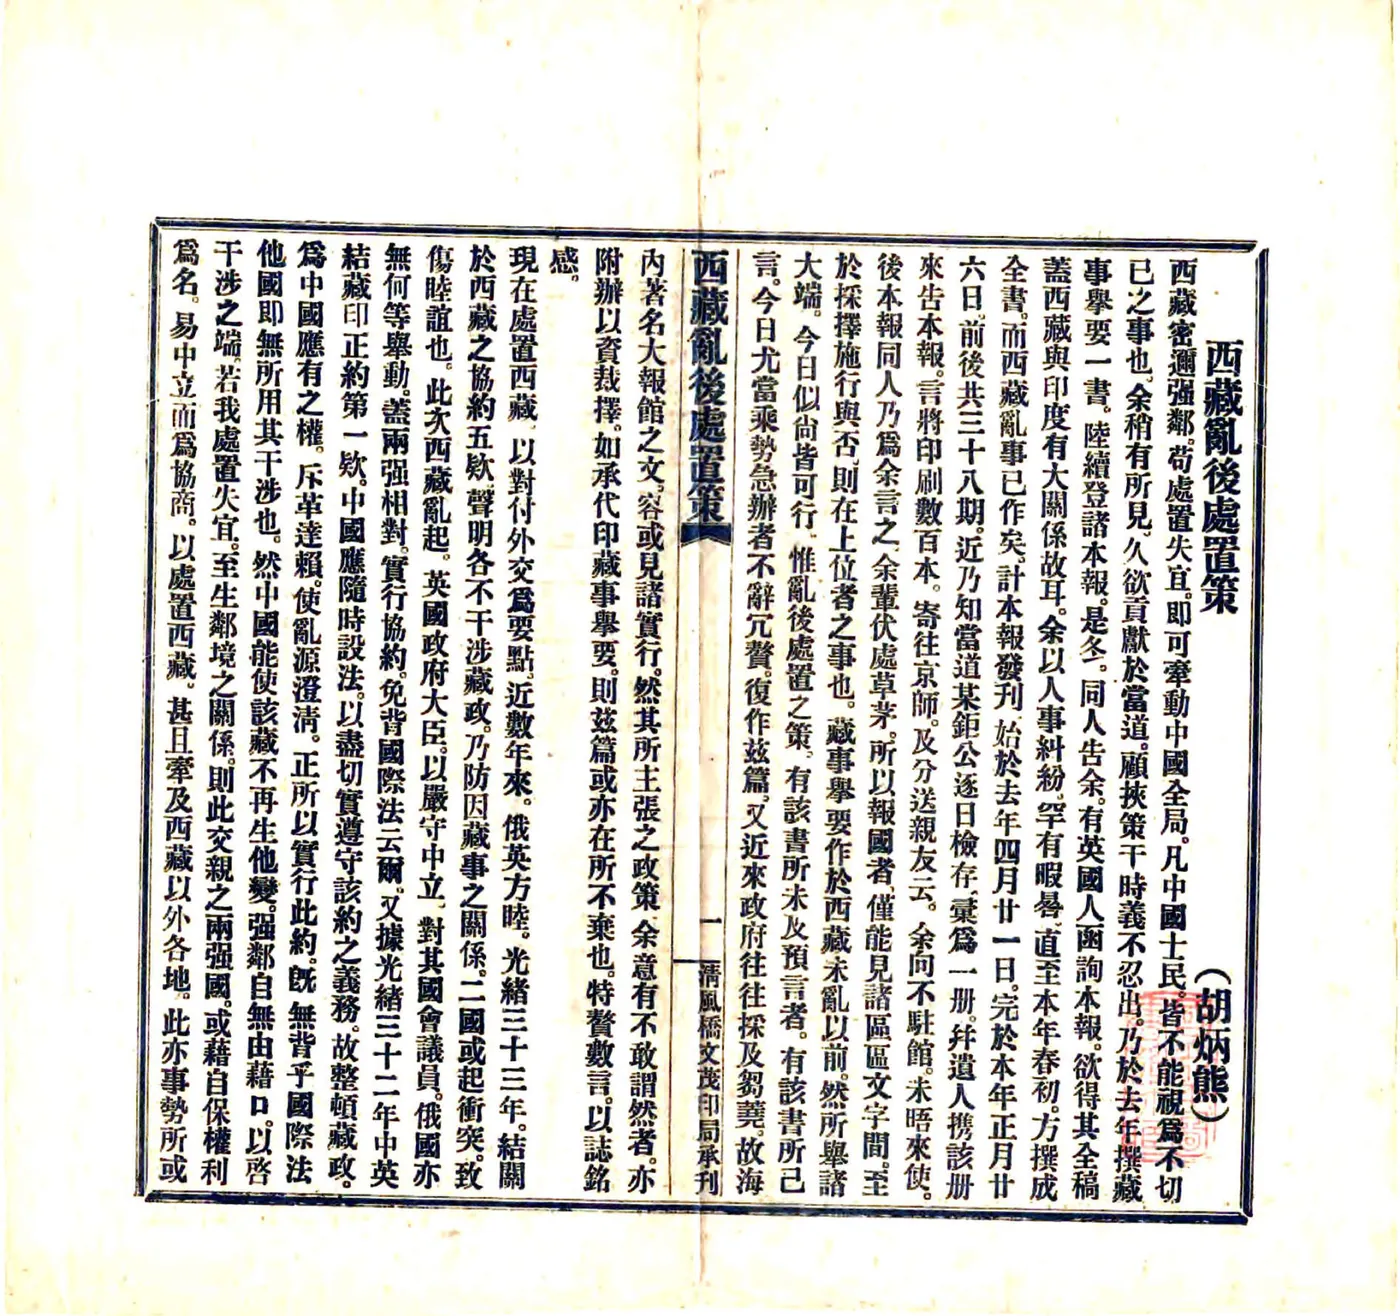 西藏亂後處置策
(胡炳熊)
西藏密邇强鄰。苟處置失宜。即可牽動中國全局。凡中國士民。皆不能視爲不切
已之事也。余稍有所見。久欲貢獻於當道。顧挾策干時義不忍出。乃於去年撰藏
事舉要一書。陸續登諸本報。是冬。同人告余。有英國人函詢本報。欲得其全稿
蓋西藏與印度有大關係故耳。余以人事糾紛。罕有暇晷。直至本年春初。方撰成
全書。而西藏亂事已作矣。計本報發刊。始於去年四月廿一日。完於本年正月廿
六日。前後共三十八期。近乃知當道某鉅公逐日檢存。彙爲一册。幷遺人携該册
來告本報。言將印刷數百本。寄往京師。及分送親友云。余向不駐館。未晤來使。
後本報同人乃爲余言之。余輩伏處草茅。所以報國者。僅能見諸區區文字間。至
於採擇施行與否。則在上位者之事也。藏事舉要作於西藏未亂以前。然所舉諸
大端。今日似尙皆可行。惟亂後處置之策。有該書所未及預言者。有該書所已
言。今日尤當乘勢急辦者不辭冗贅。復作茲篇。又近來政府往往採及芻蕘。故海
西藏亂後處置策
一
淸風橋文茂印局承刊
內著名大報館之文。容或見諸實行。然其所主張之政策。余意有不敢謂然者。亦
附辦以資裁擇。如承代印藏事舉要。則茲篇或亦在所不棄也。特贅數言。以誌銘
感。
現在處置西藏。以對付外交爲要點。近數年來。俄英方睦。光緒三十三年。結關
於西藏之協約五欵。聲明各不干涉藏政。乃防因藏事之關係。二國或起衝突。致
傷睦誼也。此次西藏亂起。英國政府大臣。以嚴守中立。對其國會議員。俄國亦
無何等舉動。蓋兩强相對。實行協約。免背國際法云爾。又據光緒三十二年中英
結藏印正約第一欵。中國應隨時設法。以盡切實遵守該約之義務。故整頓藏政。
爲中國應有之權。斥革達賴。使亂源澄淸。正所以實行此約。旣無背乎國際法
他國即無所用其干涉也。然中國能使該藏不再生他變。强鄰自無由藉口。以啓
干涉之端。若我處置失宜。至生鄰境之關係。則此交親之兩强國。或藉自保權利
爲名。易中立而爲協商。以處置西藏。甚且牽及西藏以外各地。此亦事勢所或